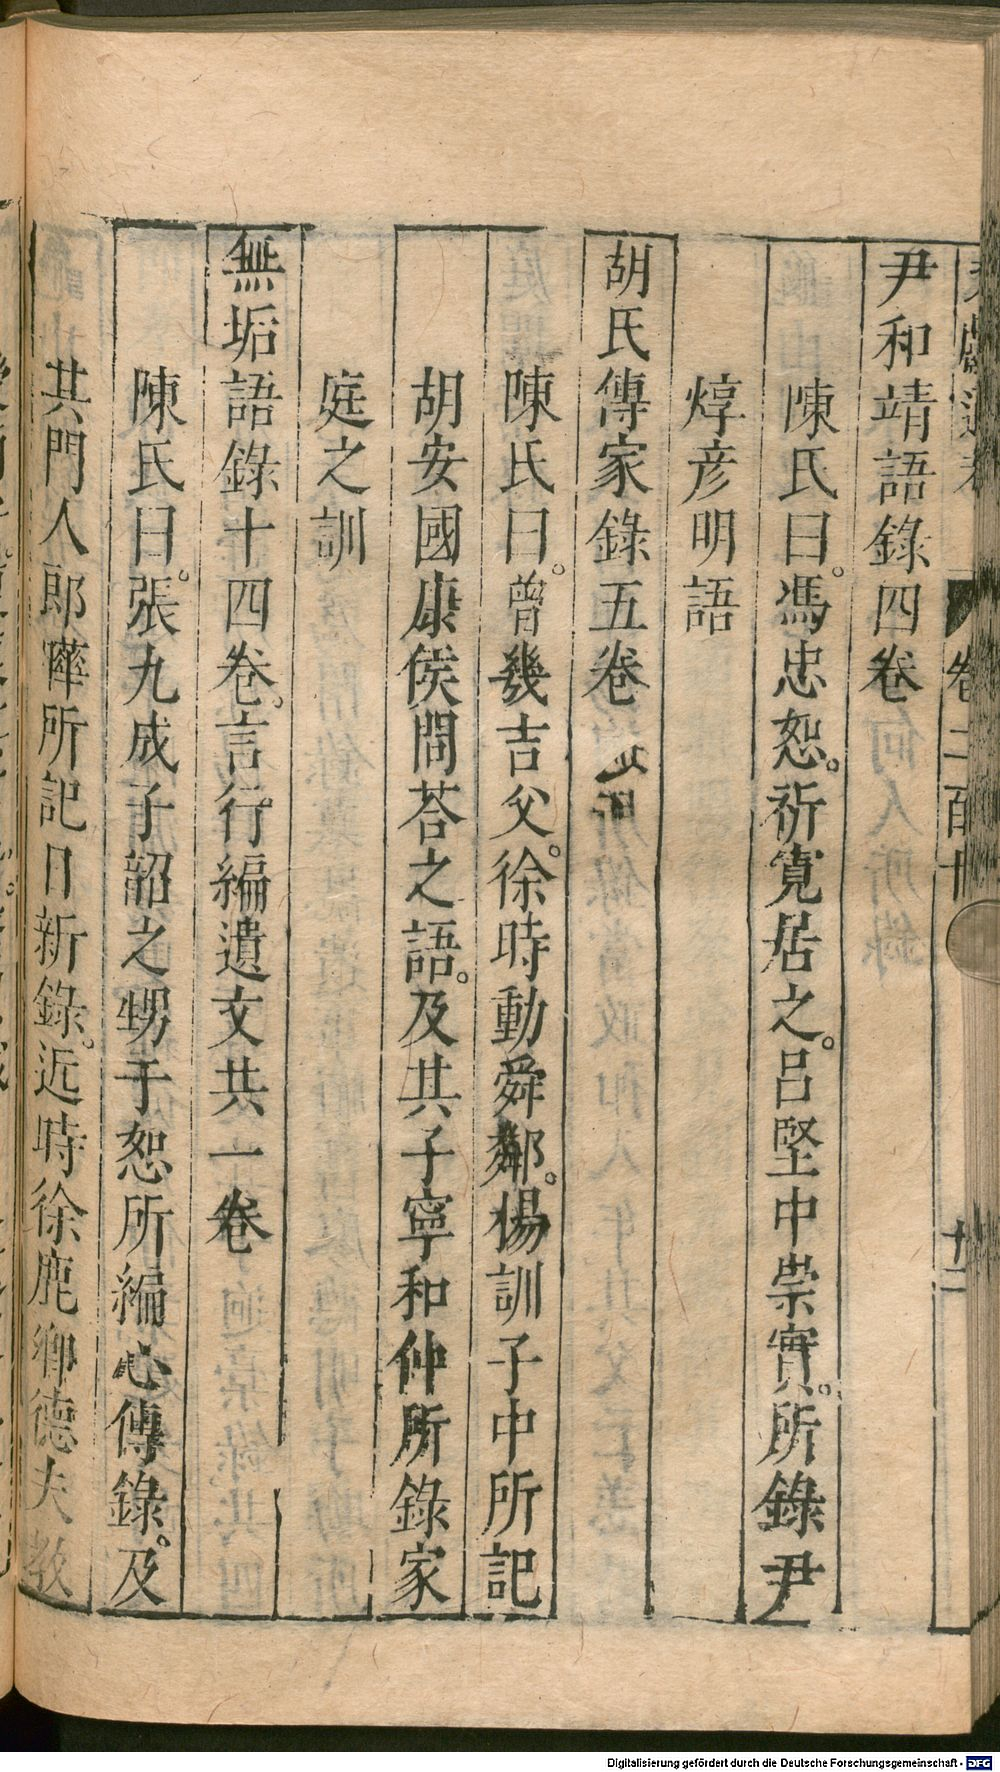 尹和靖語錄四卷
陳氏曰。馮忠恕。祈寬居之。呂堅中崇實。所錄尹
焞彦明語
胡氏傳家錄五卷
陳氏曰。曾幾吉父。徐時動舜鄰。楊訓子中所記
胡安國康侯問荅之語。及其子寧和仲所錄家
庭之訓
無垢語錄十四卷。言行編遺文共一卷
陳氏曰。張九成子韶之甥于恕所編心傳錄。及
其門人郎曄所記日新錄。近時徐鹿卿德夫教
卷二百十
十二
Digitalisierung gefördert durch die Deutsche Forschungsgemeinschaft - DFG